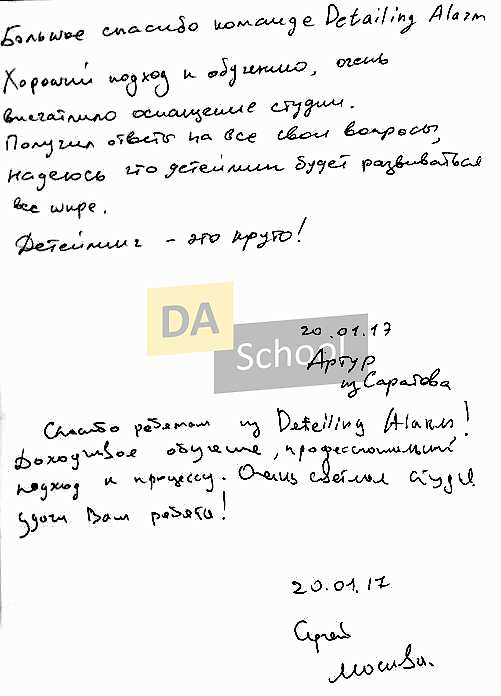 Большое спасибо команде Detailing Alarm
Хороший подход к обучению, очень
впечатлило оснащение студии.
Получил ответы на все свои вопросы,
надеюсь что детейлинг будет развиваться
все шире.
Детейлинг - это круто!
DA
School
20.01.17
Артур
из Саратова
Спасибо ребятам из Deteiling Alarm!
Доходчивое обучение, профессиональный
подход к процессу. Очень светлая студия
Удачи Вам ребята!
20.01.17
Сергей
Москва.